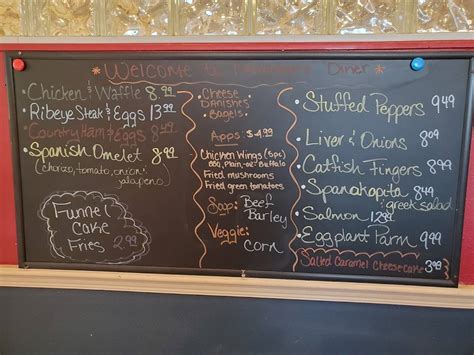 * Welcome to Diner *
• Chicken & Waffle 8.99
• Ribeye Steak & Eggs 13.99
• Country Ham & Eggs 8.99
• Spanish Omelet 8.99
(chorizo, tomato, onion, jalapeno)
Funnel
Cake
Fries 2.99
• Cheese
Danishes
• Bagels
Apps $4.99
Chicken Wings (5pc)
BBQ, Plain, or Buffalo
Fried mushrooms
Fried green tomatoes
Soup: Beef
Barley
Veggie:
Corn
• Stuffed Peppers 9.49
• Liver & Onions 8.09
• Catfish Fingers 8.99
• Spanakopita 8.49
greek salad
• Salmon 12.99
• Eggplant Parm 9.99
Salted Caramel Cheesecake 3.99